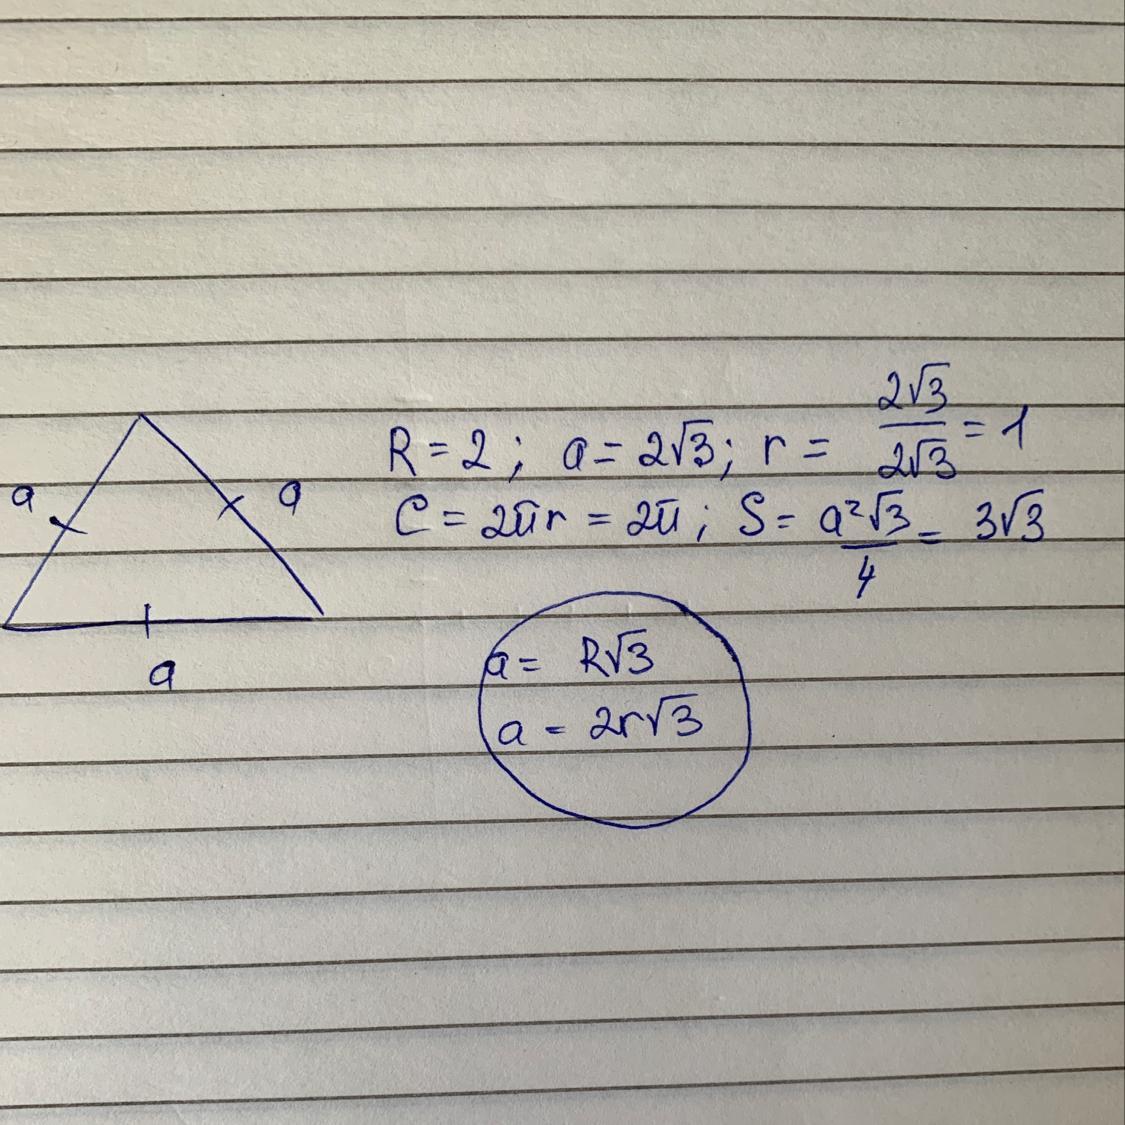 a
a
a
R = 2 ; a = 2√3; r = 2√3/2√3 = 1
C = 2πr = 2π ; S = a²√3/4 = 3√3
a = R√3
a = 2r√3